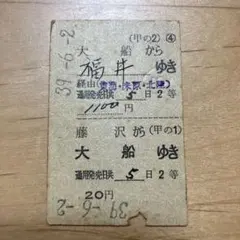 39-6-2
(甲の2) ④
大船から
福井ゆき
経由(東海・米原・北陸)
通用発売日共 5日 2等
1100円
藤沢から(甲の1)
大船ゆき
通用発売日共 5日 2等
20円
39-6-2